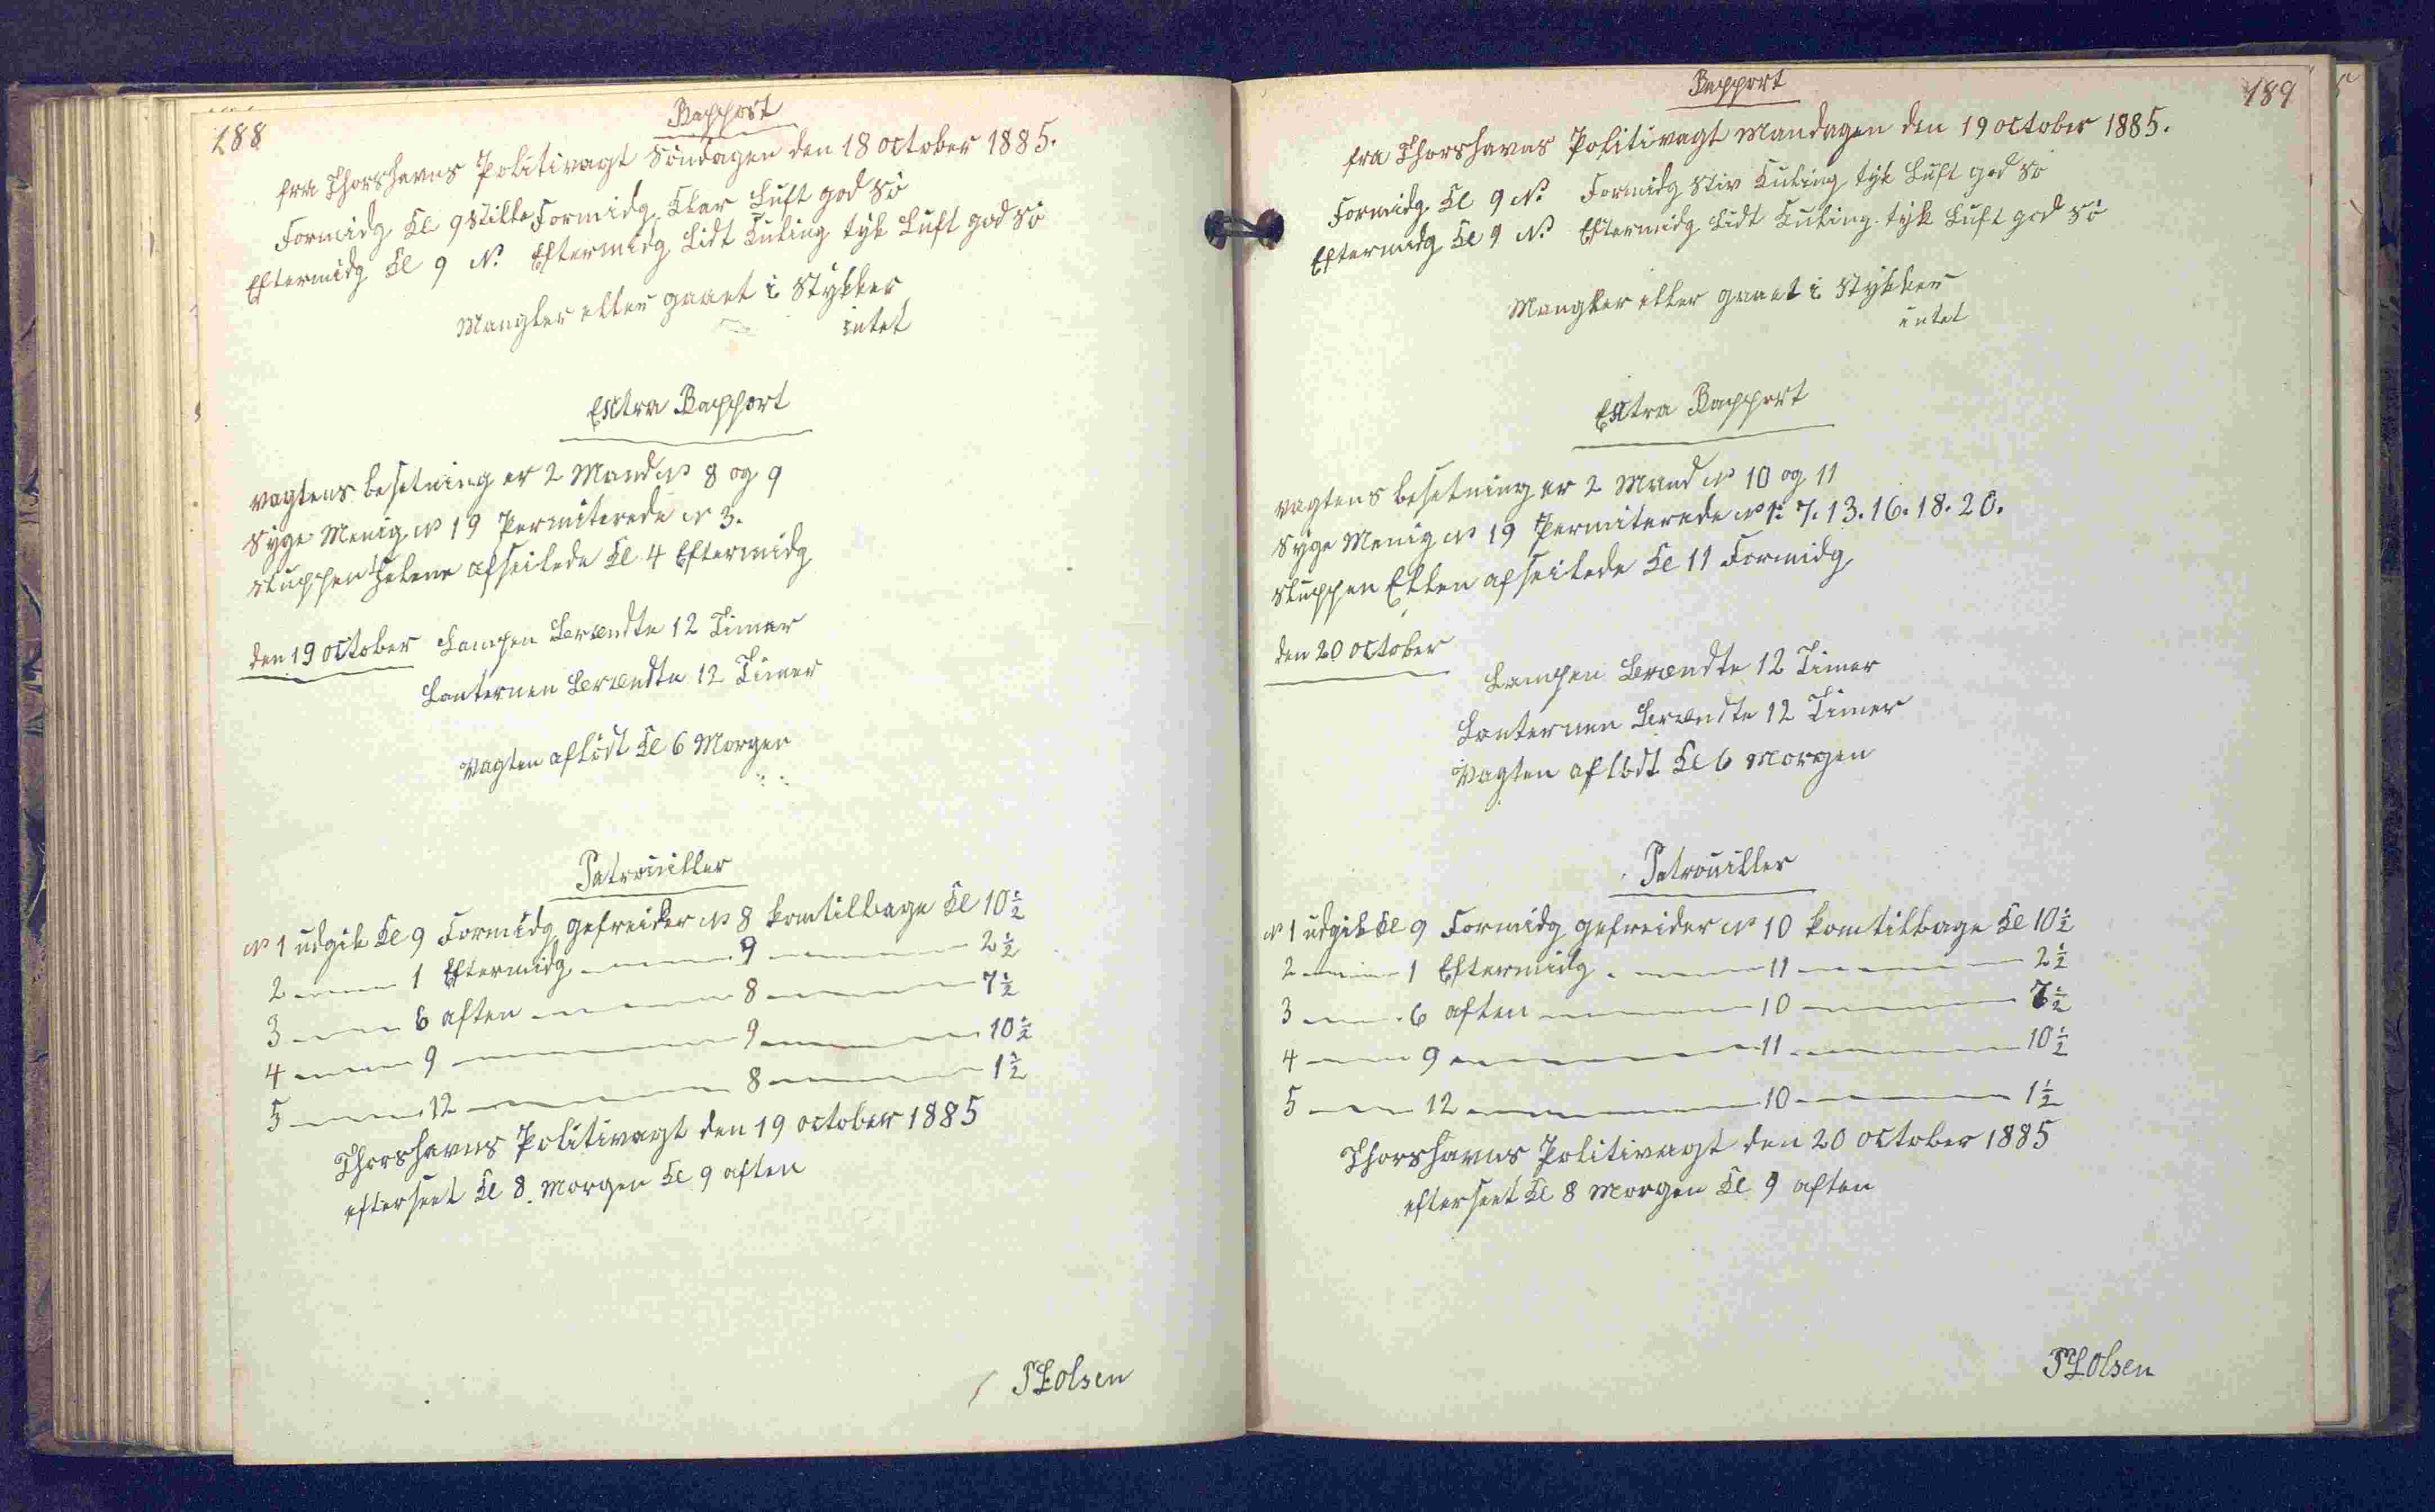 188
Rapport
fra Thorshavns Politivagt Söndagen den 18 October 1885.
Formidg Kl 9 Stille Formidg Klar Luft god Sö
Eftermidg Kl 9 N. Eftermidg Lidt Kuling tyk Luft god Sö
Mangler eller gaaet i Stykker
intet
Extra Rapport
Vagtens besetning er 2 Mand No 8 og 9
Syge Menig No 19 Permiterede No 3.
Sluppen Helene afseilede Kl 4 Eftermidg
den 19 October Lampen Brændte 12 Timer
Lanternen Brændte 12 Timer
Vagten aflöst Kl 6 Morgen
Patrouiller
No 1 udgik Kl 9 Formidg gefreider No 8 kom tilbage Kl 10½
2 — 1 Eftermidg — 9 — 2½
3 — 6 aften — 8 — 7½
4 — 9 — 9 — 10½
5 — 12 — 8 — 1½
Thorshavns Politivagt den 19 October 1885
efterseet Kl 8 Morgen Kl 9 aften
PLOlsen
189
Rapport
fra Thorshavns Politivagt Mandagen den 19 October 1885.
Formidg Kl 9 N. Formidg Stiv Kuling tyk Luft god Sö
Eftermidg Kl 9 N. Eftermidg Lidt Kuling tyk Luft god Sö
Mangler eller gaaet i Stykker
intet
Extra Rapport
Vagtens besetning er 2 Mand No 10 og 11
Syge Menig No 19 Permiterede No 1. 7. 13. 16. 18. 20.
Sluppen Ellen afseilede Kl 11 Formidg
den 20 October
Lampen Brændte 12 Timer
Lanternen Brændte 12 Timer
Vagten aflöst Kl 6 Morgen
Patrouiller
No 1 udgik Kl 9 Formidg gefreider No 10 kom tilbage Kl 10½
2 — 1 Eftermidg — 11 — 2½
3 — 6 aften — 10 — 7½
4 — 9 — 11 — 10½
5 — 12 — 10 — 1½
Thorshavns Politivagt den 20 October 1885
efterseet Kl 8 Morgen Kl 9 aften
PLOlsen